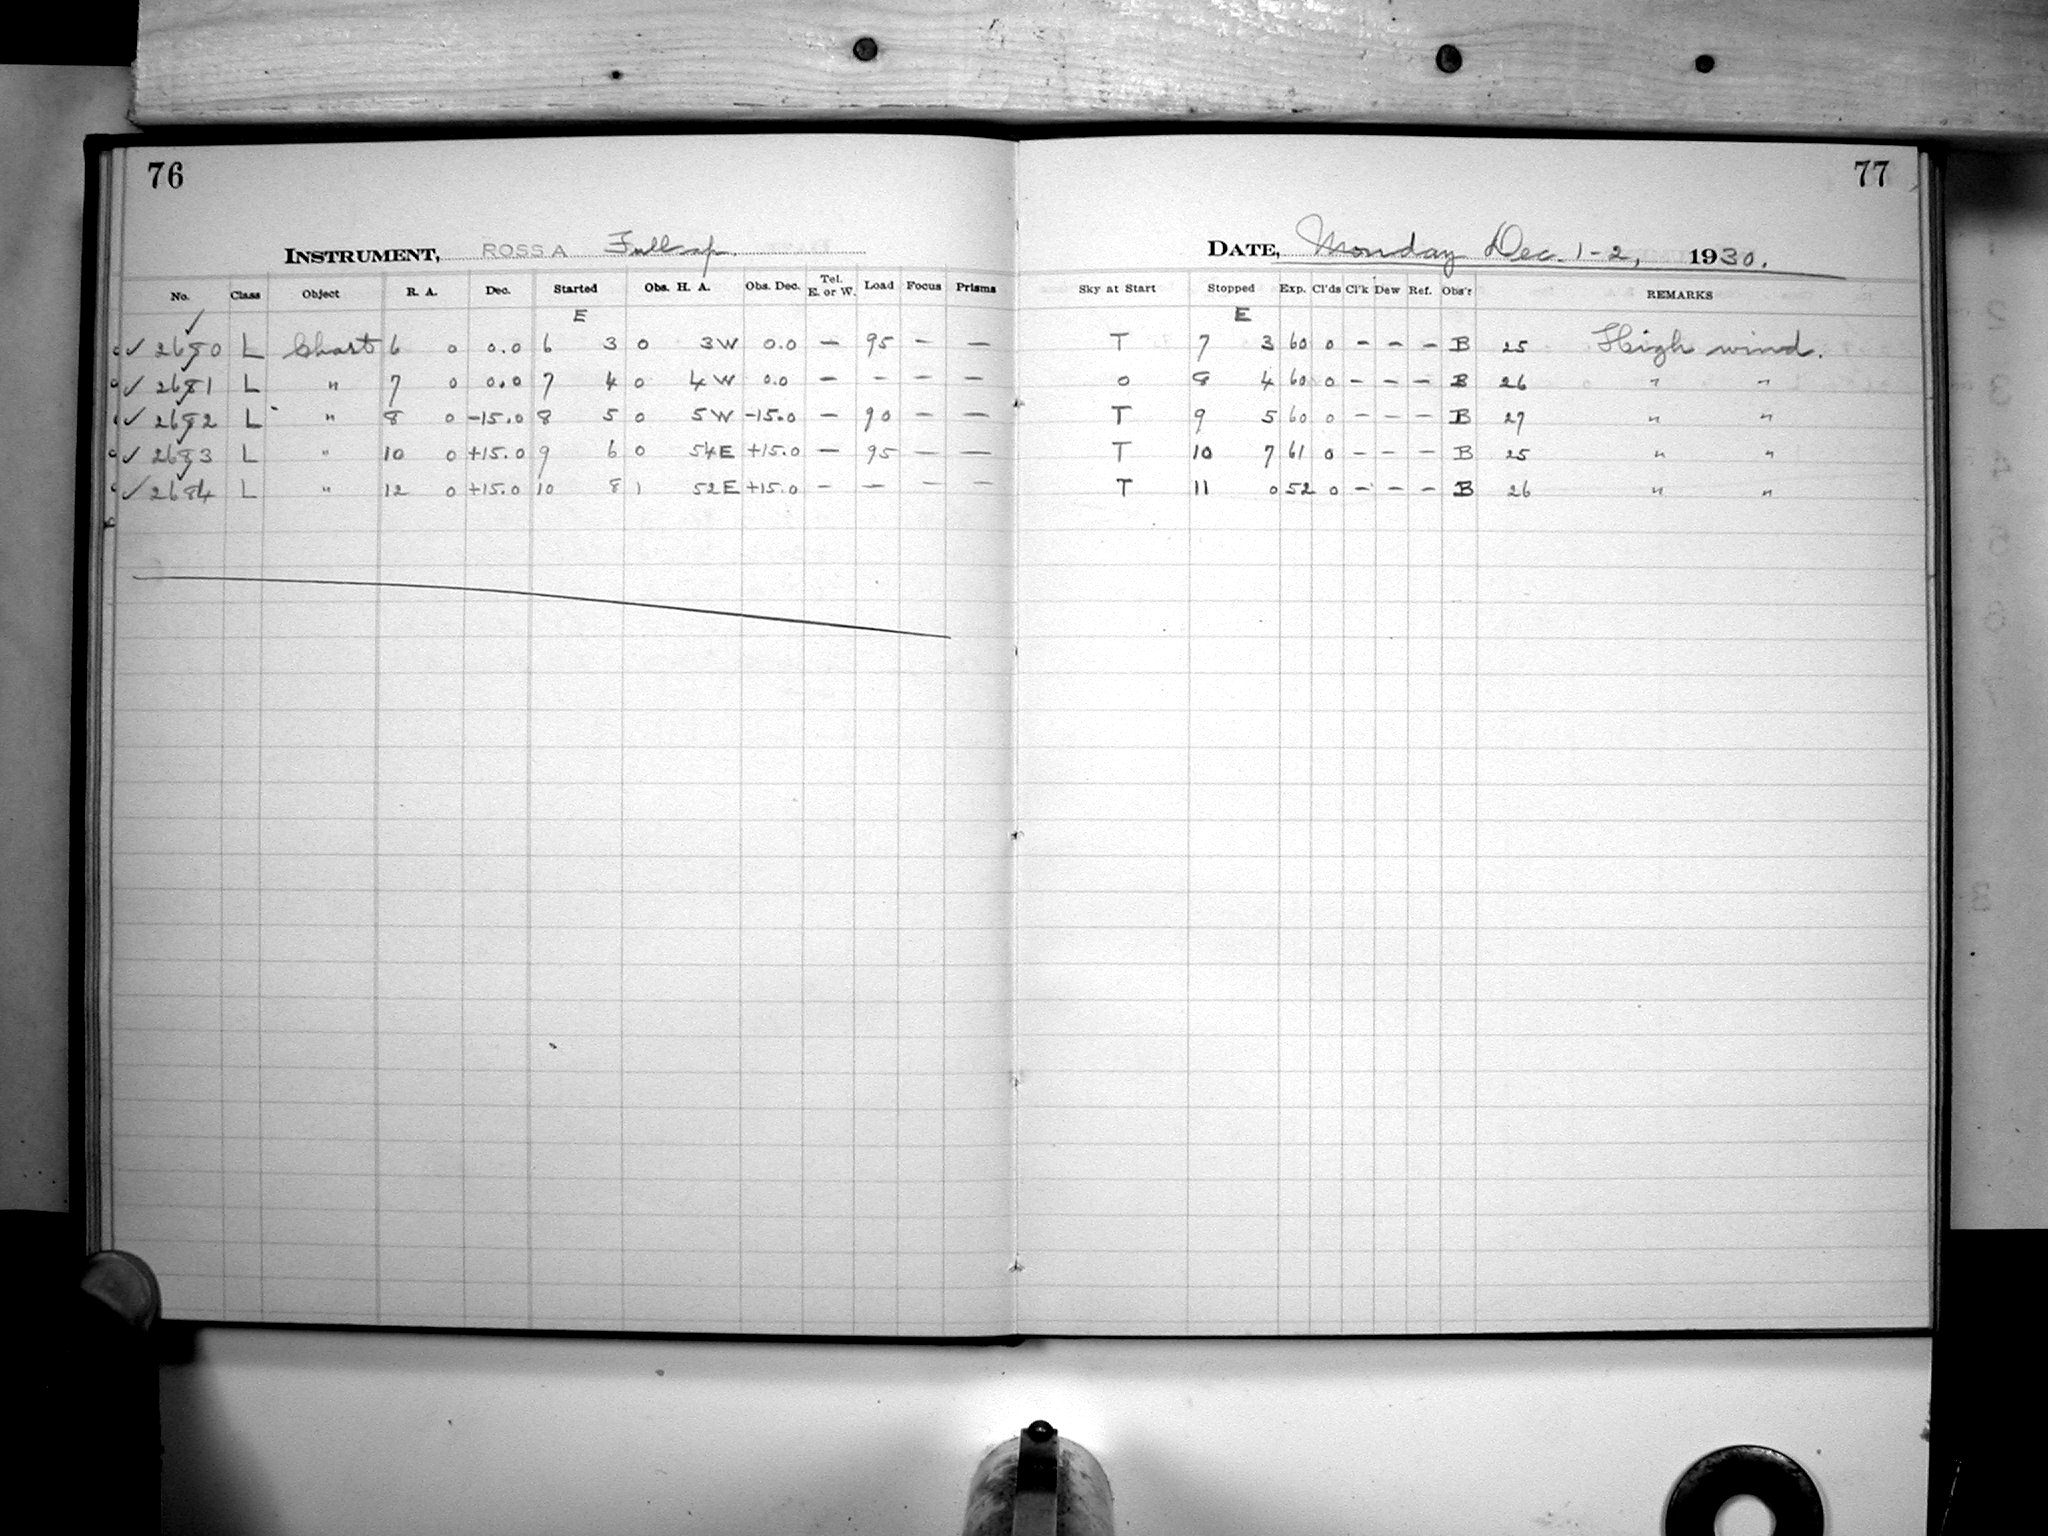 76
INSTRUMENT, ROSS A Full ap.
No. Class Object R. A. Dec. Started Obs. H. A. Obs. Dec. Tel. E. or W. Load Focus Prisms
E
✓ 2680 L Chart 6 0 0.0 6 3 0 3W 0.0 — 95 — —
✓ 2681 L " 7 0 0.0 7 4 0 4W 0.0 — - — —
✓ 2682 L " 8 0 -15.0 8 5 0 5W -15.0 — 90 — —
✓ 2683 L " 10 0 +15.0 9 6 0 54E +15.0 — 95 — —
✓ 2684 L " 12 0 +15.0 10 8 1 52E +15.0 — — — —
77
DATE, Monday Dec. 1-2, 1930.
Sky at Start Stopped Exp. Cl'ds Cl'k Dew Ref. Obs'r REMARKS
E
T 7 3 60 0 - - - B 25 High wind.
0 8 4 60 0 - - - B 26 " "
T 9 5 60 0 - - - B 27 " "
T 10 7 61 0 - - - B 25 " "
T 11 0 52 0 - - - B 26 " "